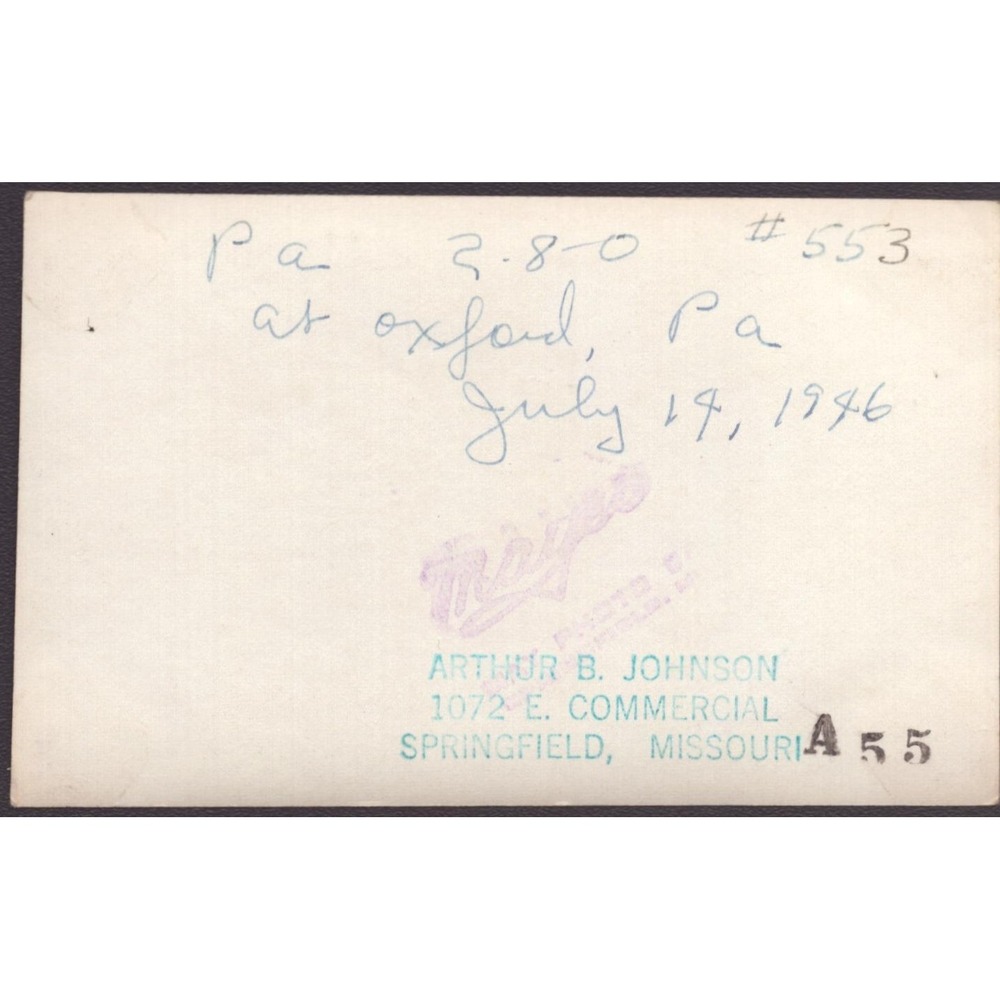 Pa 2-8-0 #553
at oxford, Pa
July 14, 1946
PHOTO
ARTHUR B. JOHNSON
1072 E. COMMERCIAL
SPRINGFIELD, MISSOURI
A 55